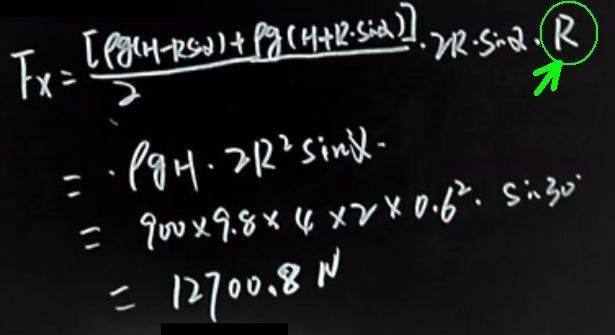 Fx = [ρg(H-Rsinα)+ρg(H+R·sinα)]/2 · 2R·sinα · R
= ρgH · 2R² sinα.
= 900×9.8×4×2×0.6²· sin30°
= 12700.8 N